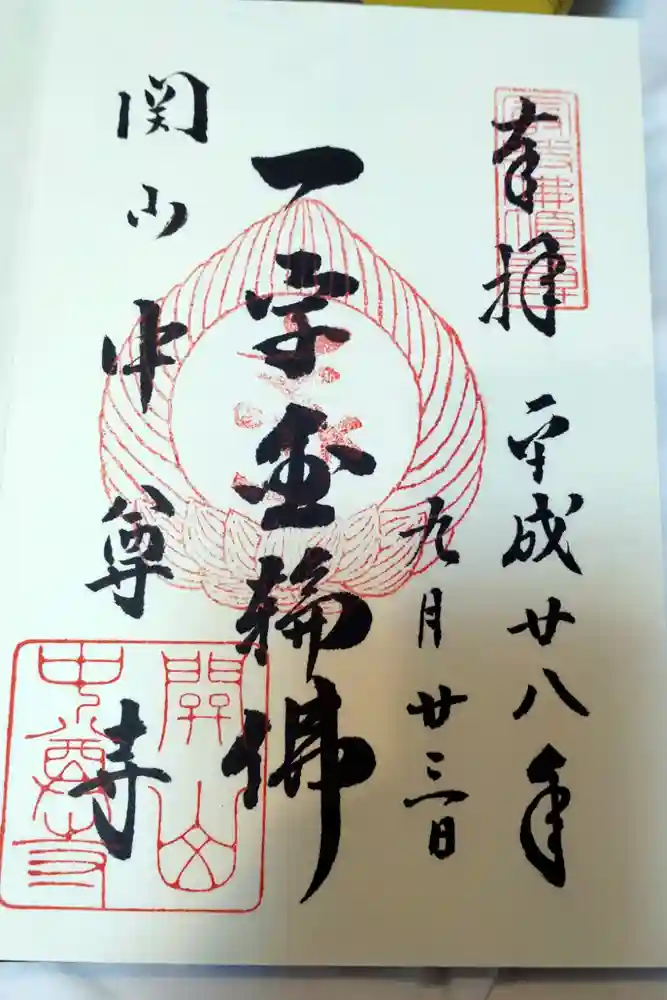 奉拝
平成廿八年
九月廿三日
一字金輪佛
関山中尊寺
関山
中尊寺